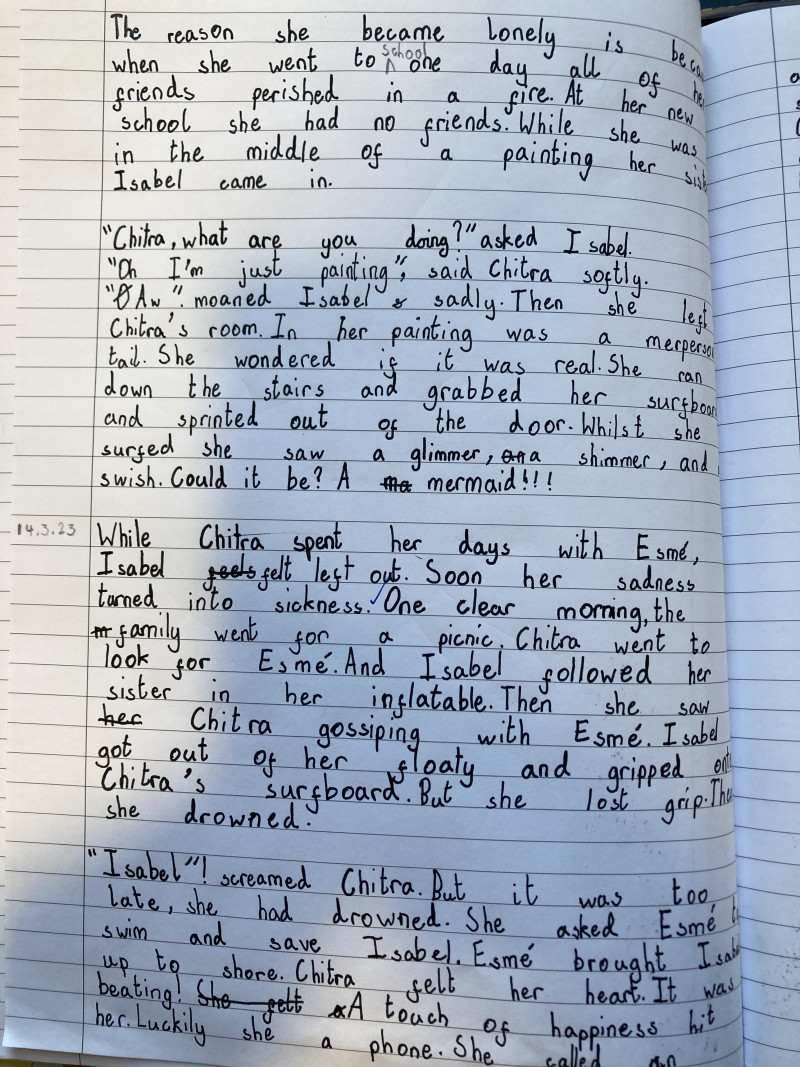 The reason she became lonely is beca
when she went to school one day all of he
friends perished in a fire. At her new
school she had no friends. While she was
in the middle of a painting her sist
Isabel came in.
"Chitra, what are you doing?" asked Isabel.
"Oh I'm just painting", said Chitra softly.
"Aw". moaned Isabel sadly. Then she left
Chitra's room. In her painting was a merperson
tail. She wondered if it was real. She ran
down the stairs and grabbed her surfboar
and sprinted out of the door. Whilst she
surfed she saw a glimmer, a shimmer, and
swish. Could it be? A mermaid!!!
14.3.23
While Chitra spent her days with Esmé,
Isabel feels felt left out. Soon her sadness
tarned into sickness. One clear morning, the
family went for a picnic. Chitra went to
look for Esmé. And Isabel followed her
sister in her inflatable. Then she saw
her Chitra gossiping with Esmé. Isabel
got out of her floaty and gripped ont
Chitra's surfboard. But she lost grip. The
she drowned.
"Isabel"! screamed Chitra. But it was too
late, she had drowned. She asked Esmé t
swim and save Isabel. Esmé brought Isab
up to shore. Chitra felt her heart. It was
beating! She felt A touch of happiness hit
her. Luckily she a phone. She called an